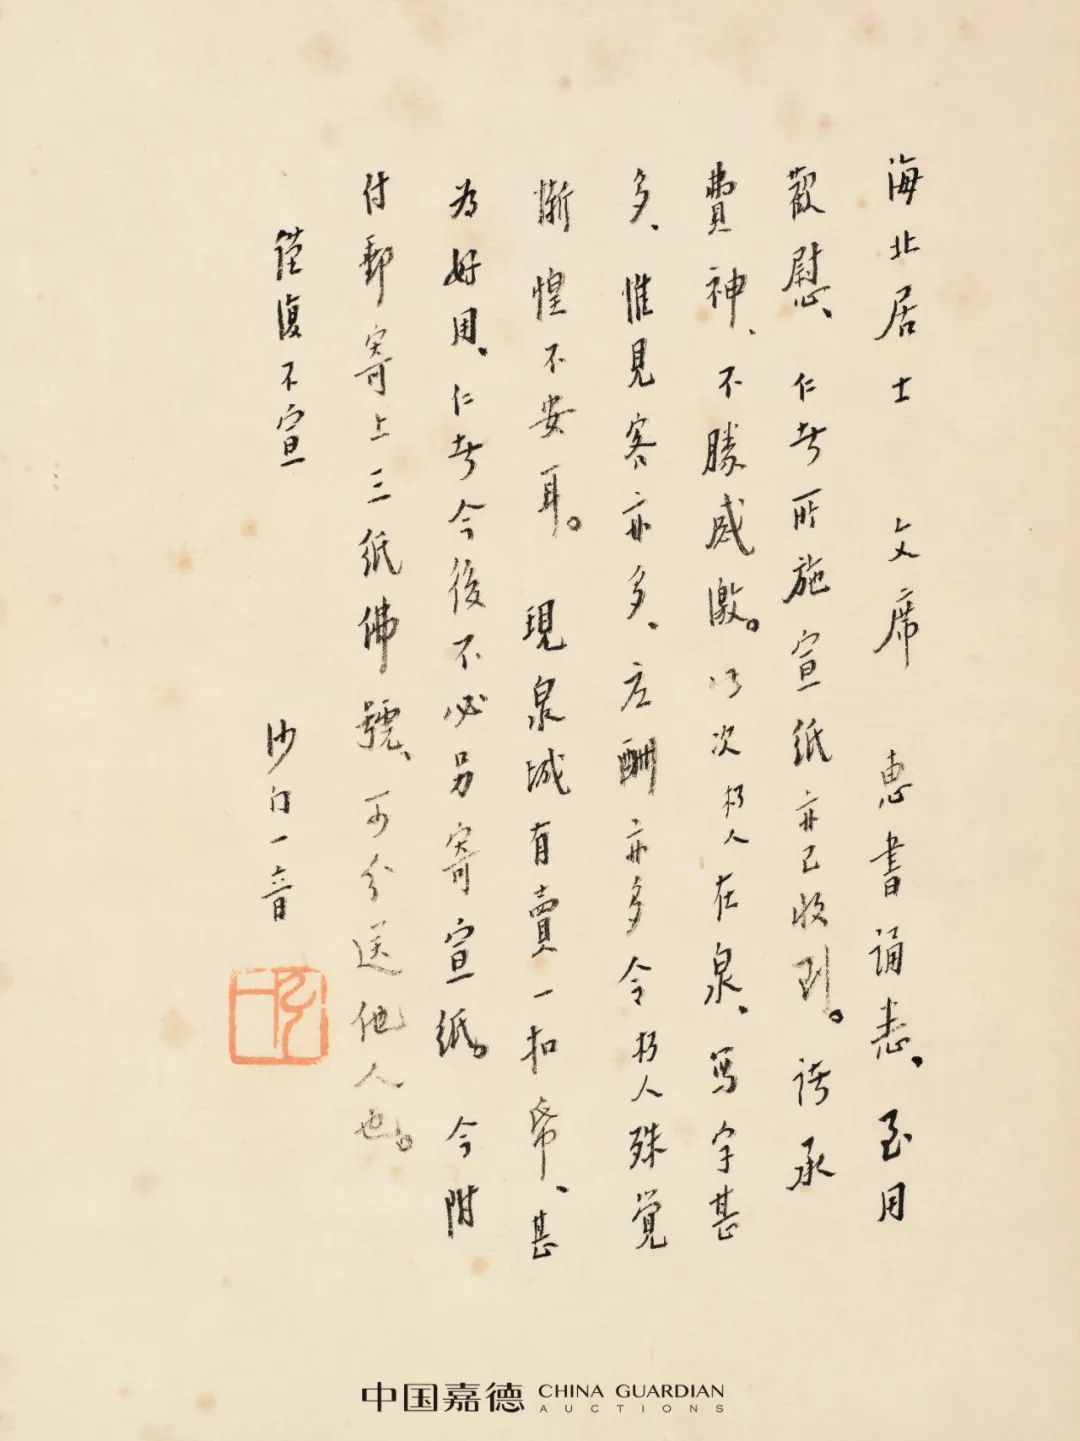 海北居士 文席 惠書誦悉、至用
歡慰、仁者所施宣紙亦已收到。諸承
費神、不勝感激。此次朽人在泉、寫字甚
多、惟見客亦多、应酬亦多令朽人殊覚
慚惶不安耳。現泉城有賣一扣帋、甚
为好用、仁者今後不必另寄宣紙。今附
付郵寄上三紙佛號、可分送他人也。
谨復不宣
沙门一音
中国嘉德 CHINA GUARDIAN
AUCTIONS